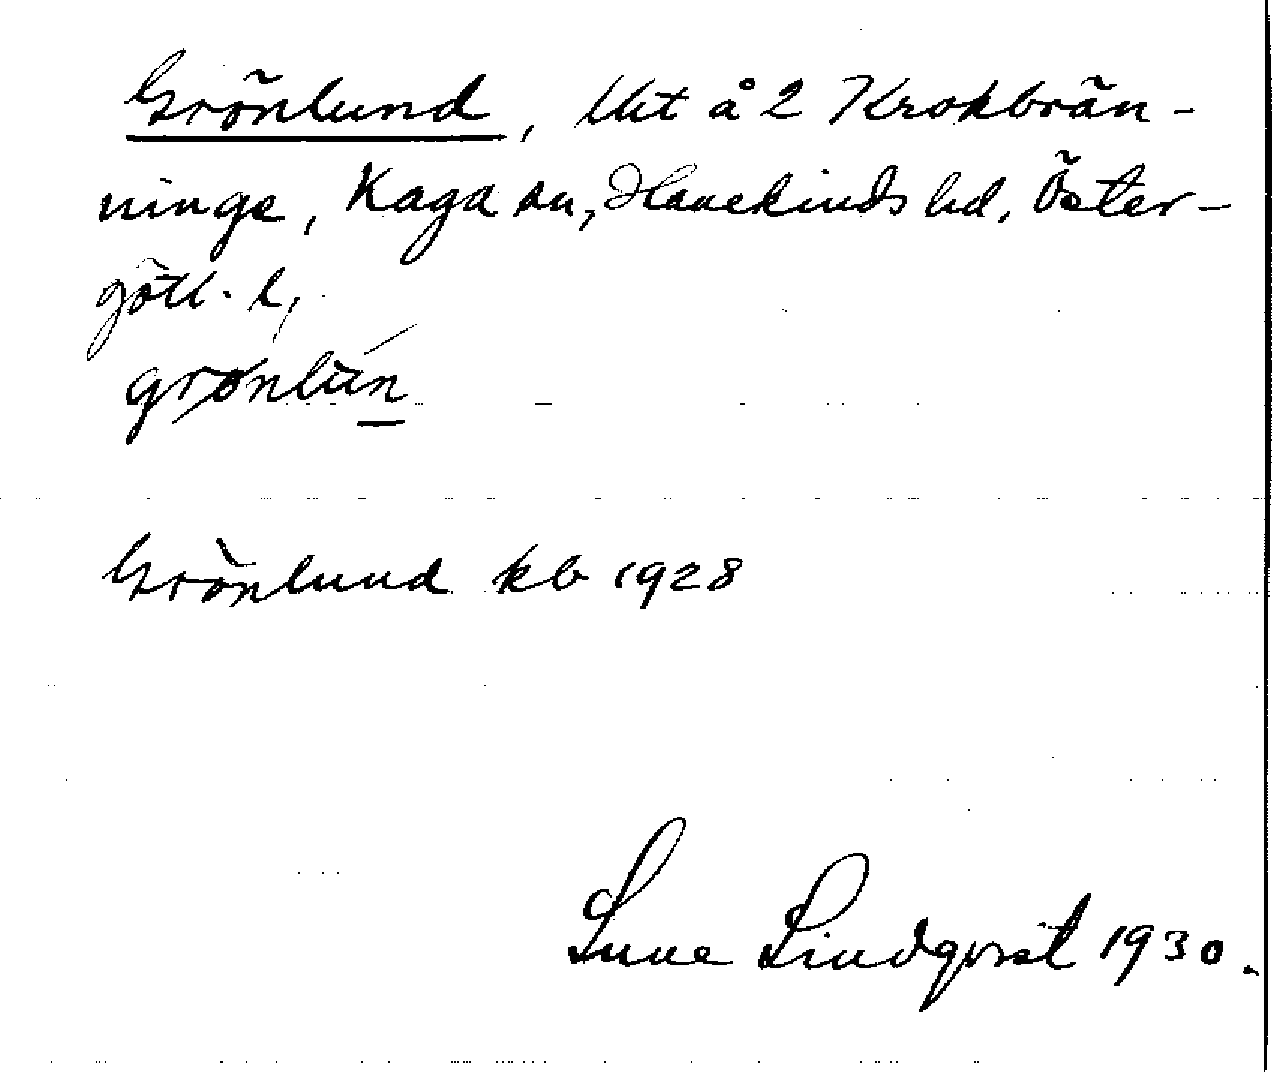 Grönlund, Utt å 2 Krokbrän-
ninge, Kaga sn, Hanekinds hd, Öster-
götl. l,
grönlún
Grönlund kb 1928
Sune Lindqvist 1930.